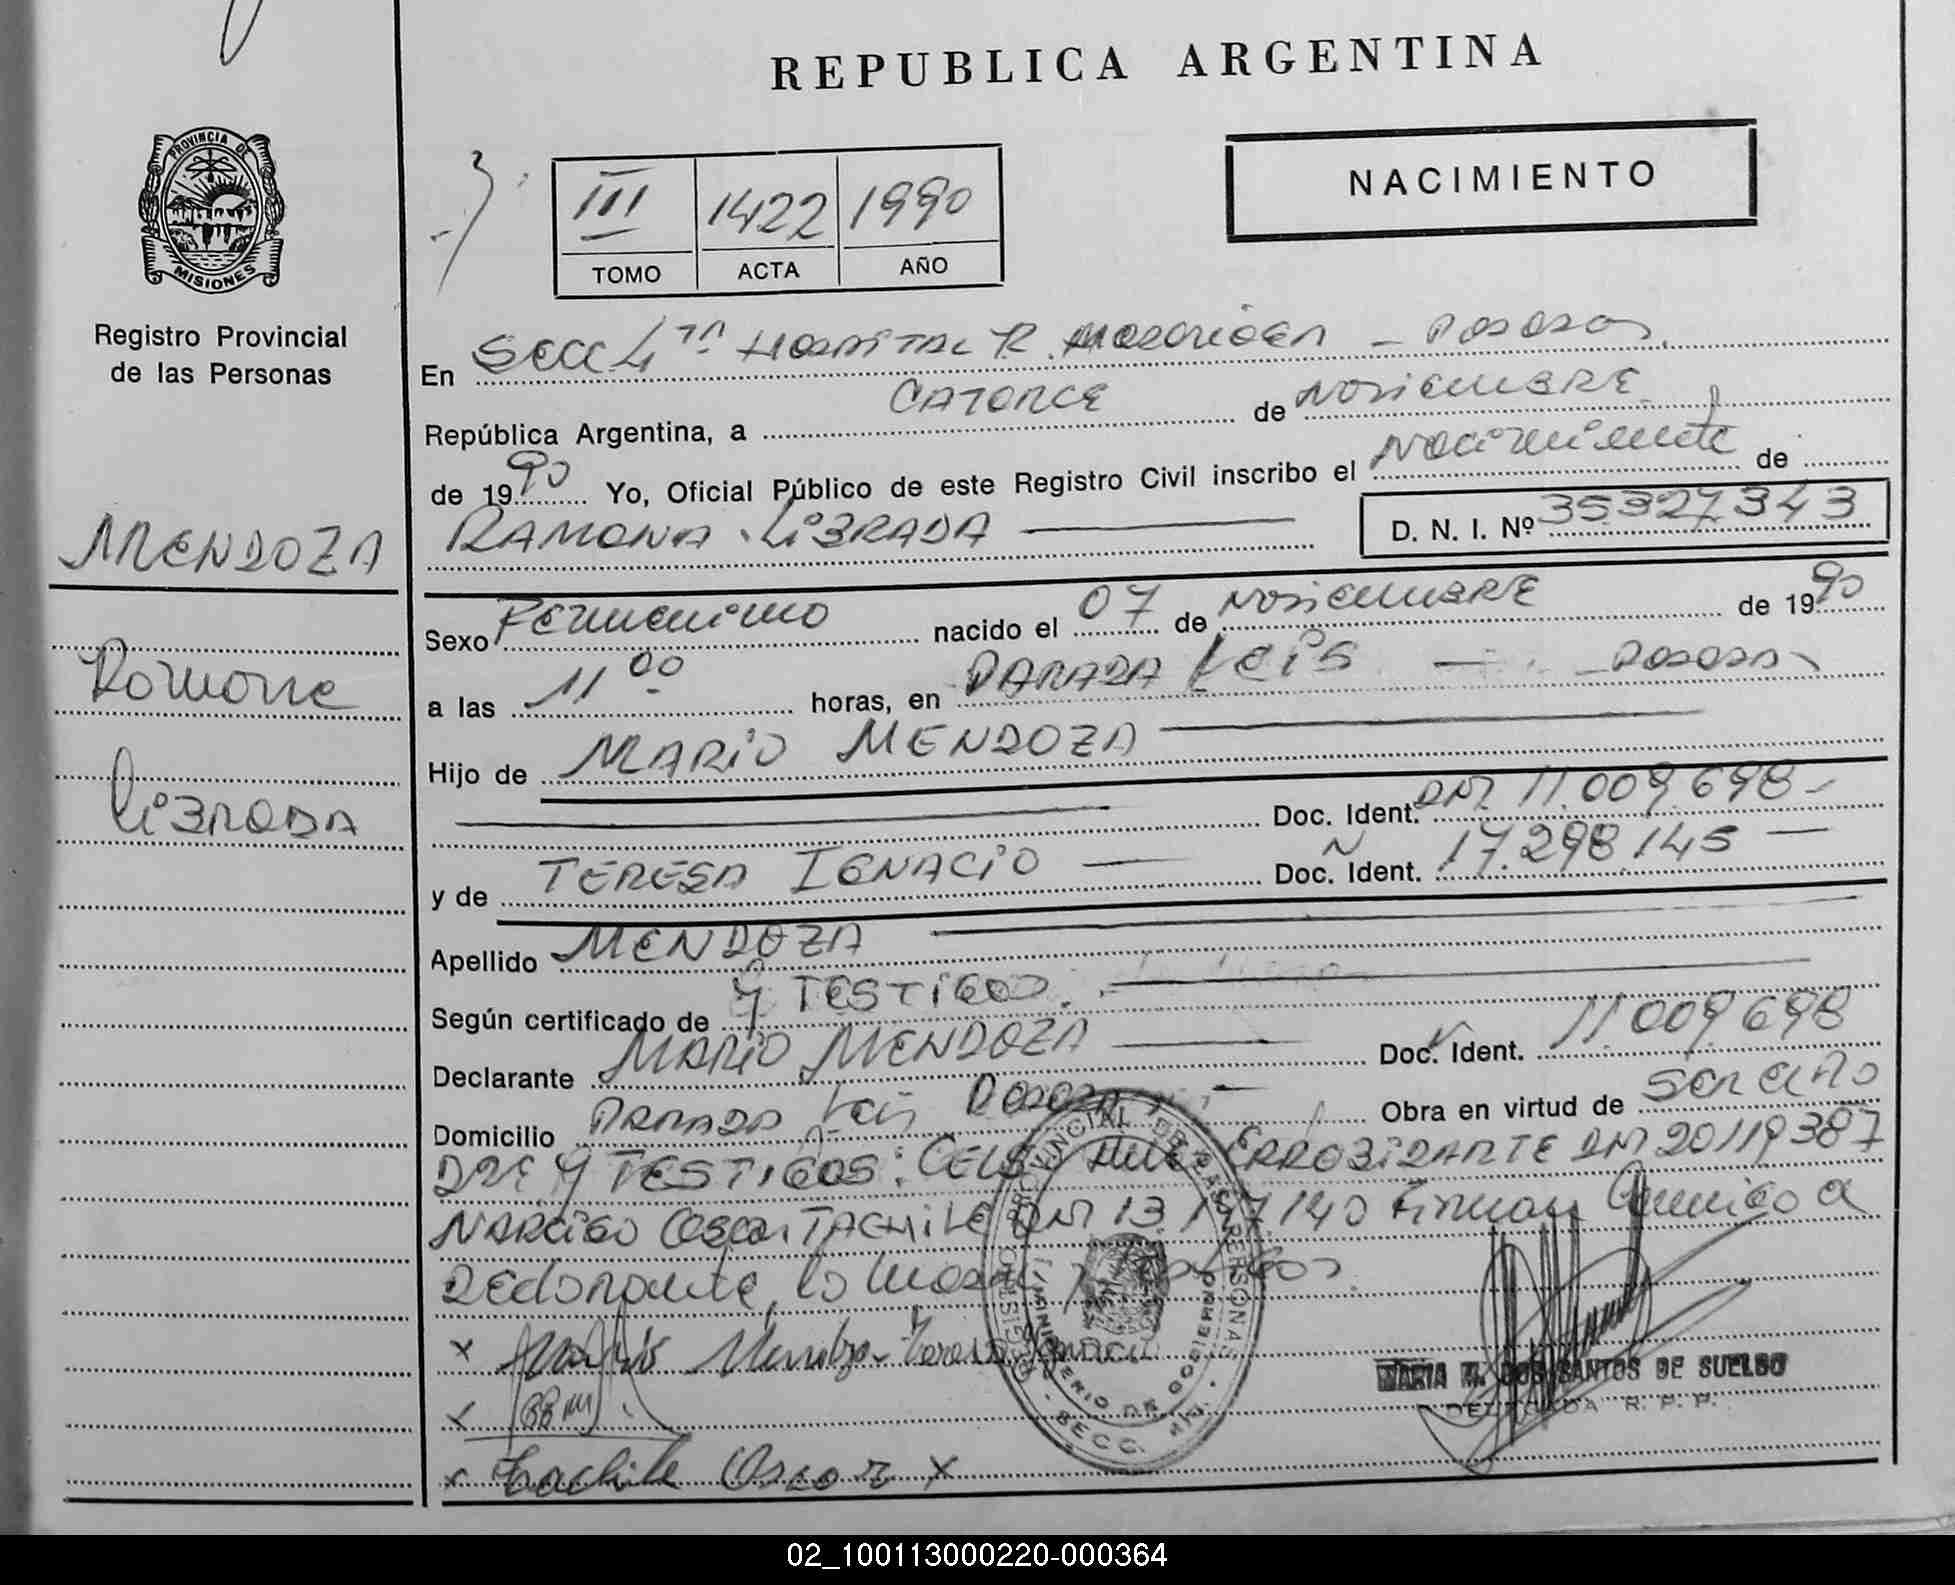 REPUBLICA ARGENTINA
NACIMIENTO
PROVINCIA DE
MISIONES
Registro Provincial
de las Personas
III 1422 1990
TOMO ACTA AÑO
En SECC 4ta HOSPITAL R. MADARIAGA - POSADAS
República Argentina, a CATORCE de NOVIEMBRE
de 1990 Yo, Oficial Público de este Registro Civil inscribo el Nacimiento de
RAMONA LIBRADA D. N. I. Nº 35327343
MENDOZA
Ramona
LIBRADA
Sexo FEMENINO nacido el 07 de NOVIEMBRE de 1990
a las 11 00 horas, en PARADA LEIS - POSADAS
Hijo de MARIO MENDOZA
Doc. Ident. DNI 11.009.698
y de TERESA IGNACIO Doc. Ident. 17.298.145
Apellido MENDOZA
Según certificado de y TESTIGOS.
Declarante MARIO MENDOZA Doc. Ident. 11.009.698
Domicilio PARADA Leis Posadas Obra en virtud de SER EL PA
DRE Y TESTIGOS: DNI 20119387
NARCISO OSCAR TACHILE DNI 13. 140 Firman Conmigo el
Declarante, la Madre y testigos.
x Mario Mendoza - Teresa Ignacio
x
x Tachile Oscar x
REGISTRO PROVINCIAL DE LAS PERSONAS
MINISTERIO DE GOBIERNO
SECC.
MARIA DOS SANTOS DE SUELDO
DELEGADA R. P. P.
02_100113000220-000364